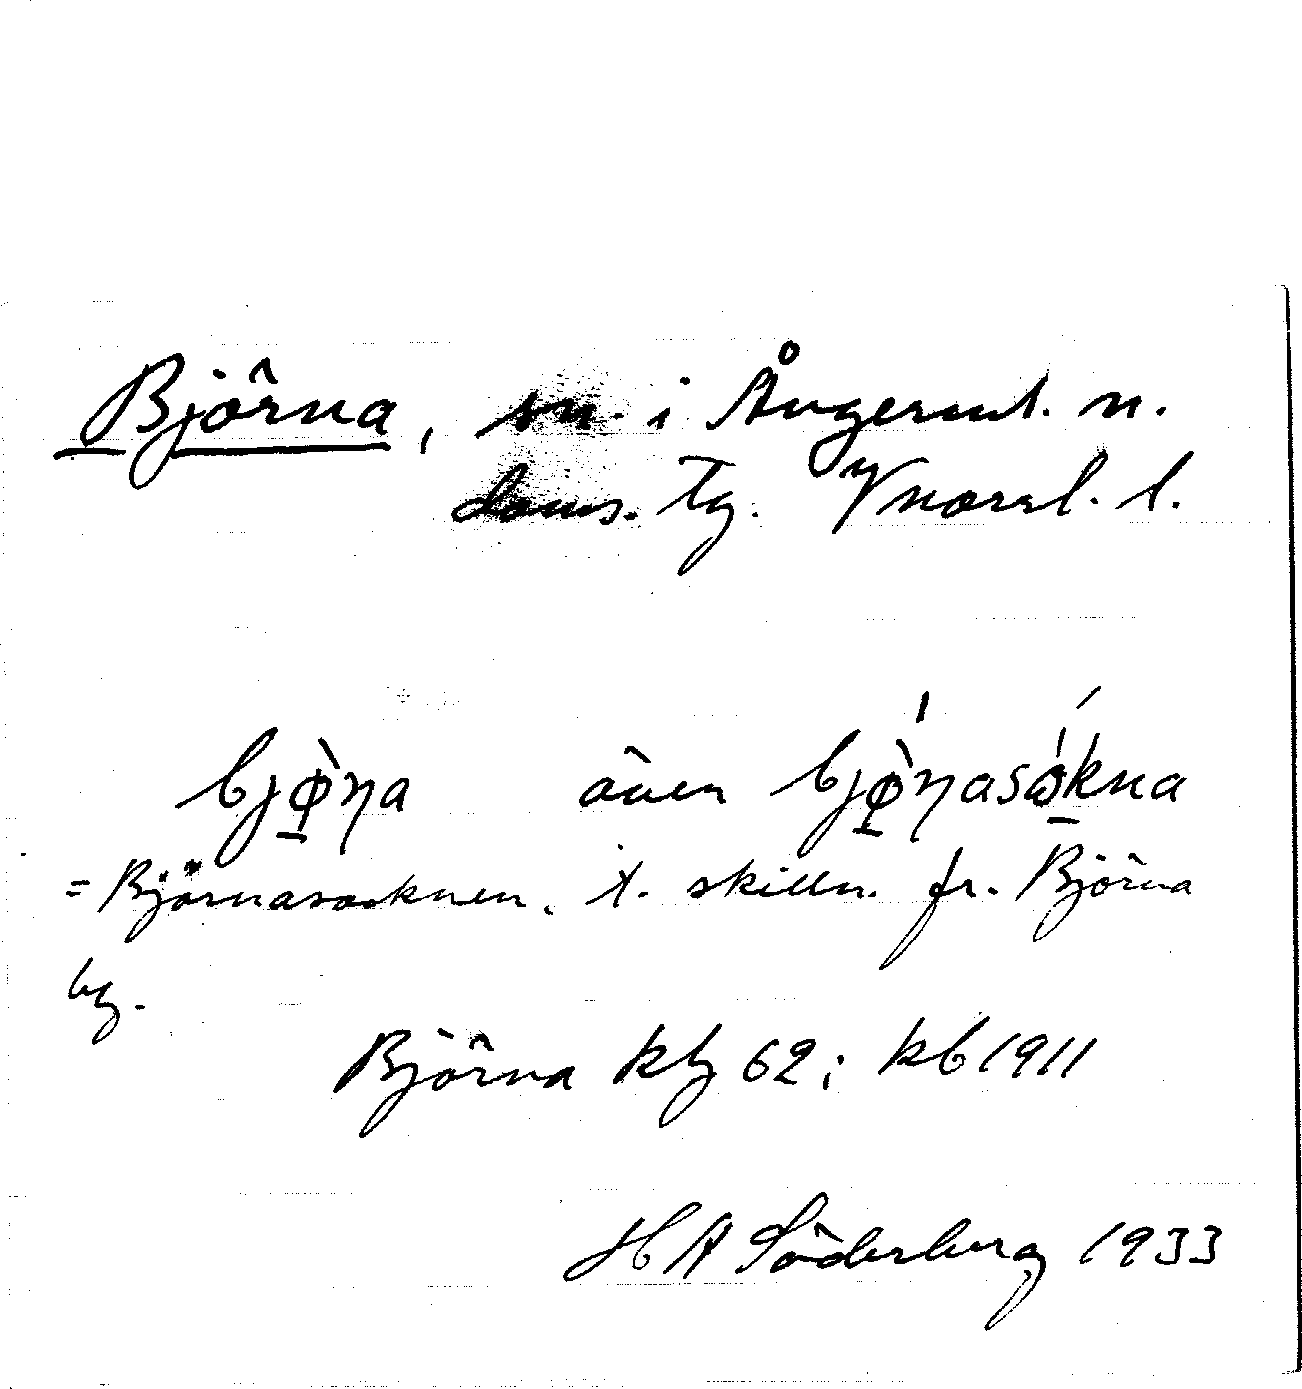 Björna, sn. i Ångerml. n.
doms. Tg. Vnorrl. l.
bjø̀ꞃa även bjø̀ꞃasók̠na
= Björnasocknen. t. skilln. fr. Björna
by.
Björna kby 62; kb 1911
H A Söderberg 1933